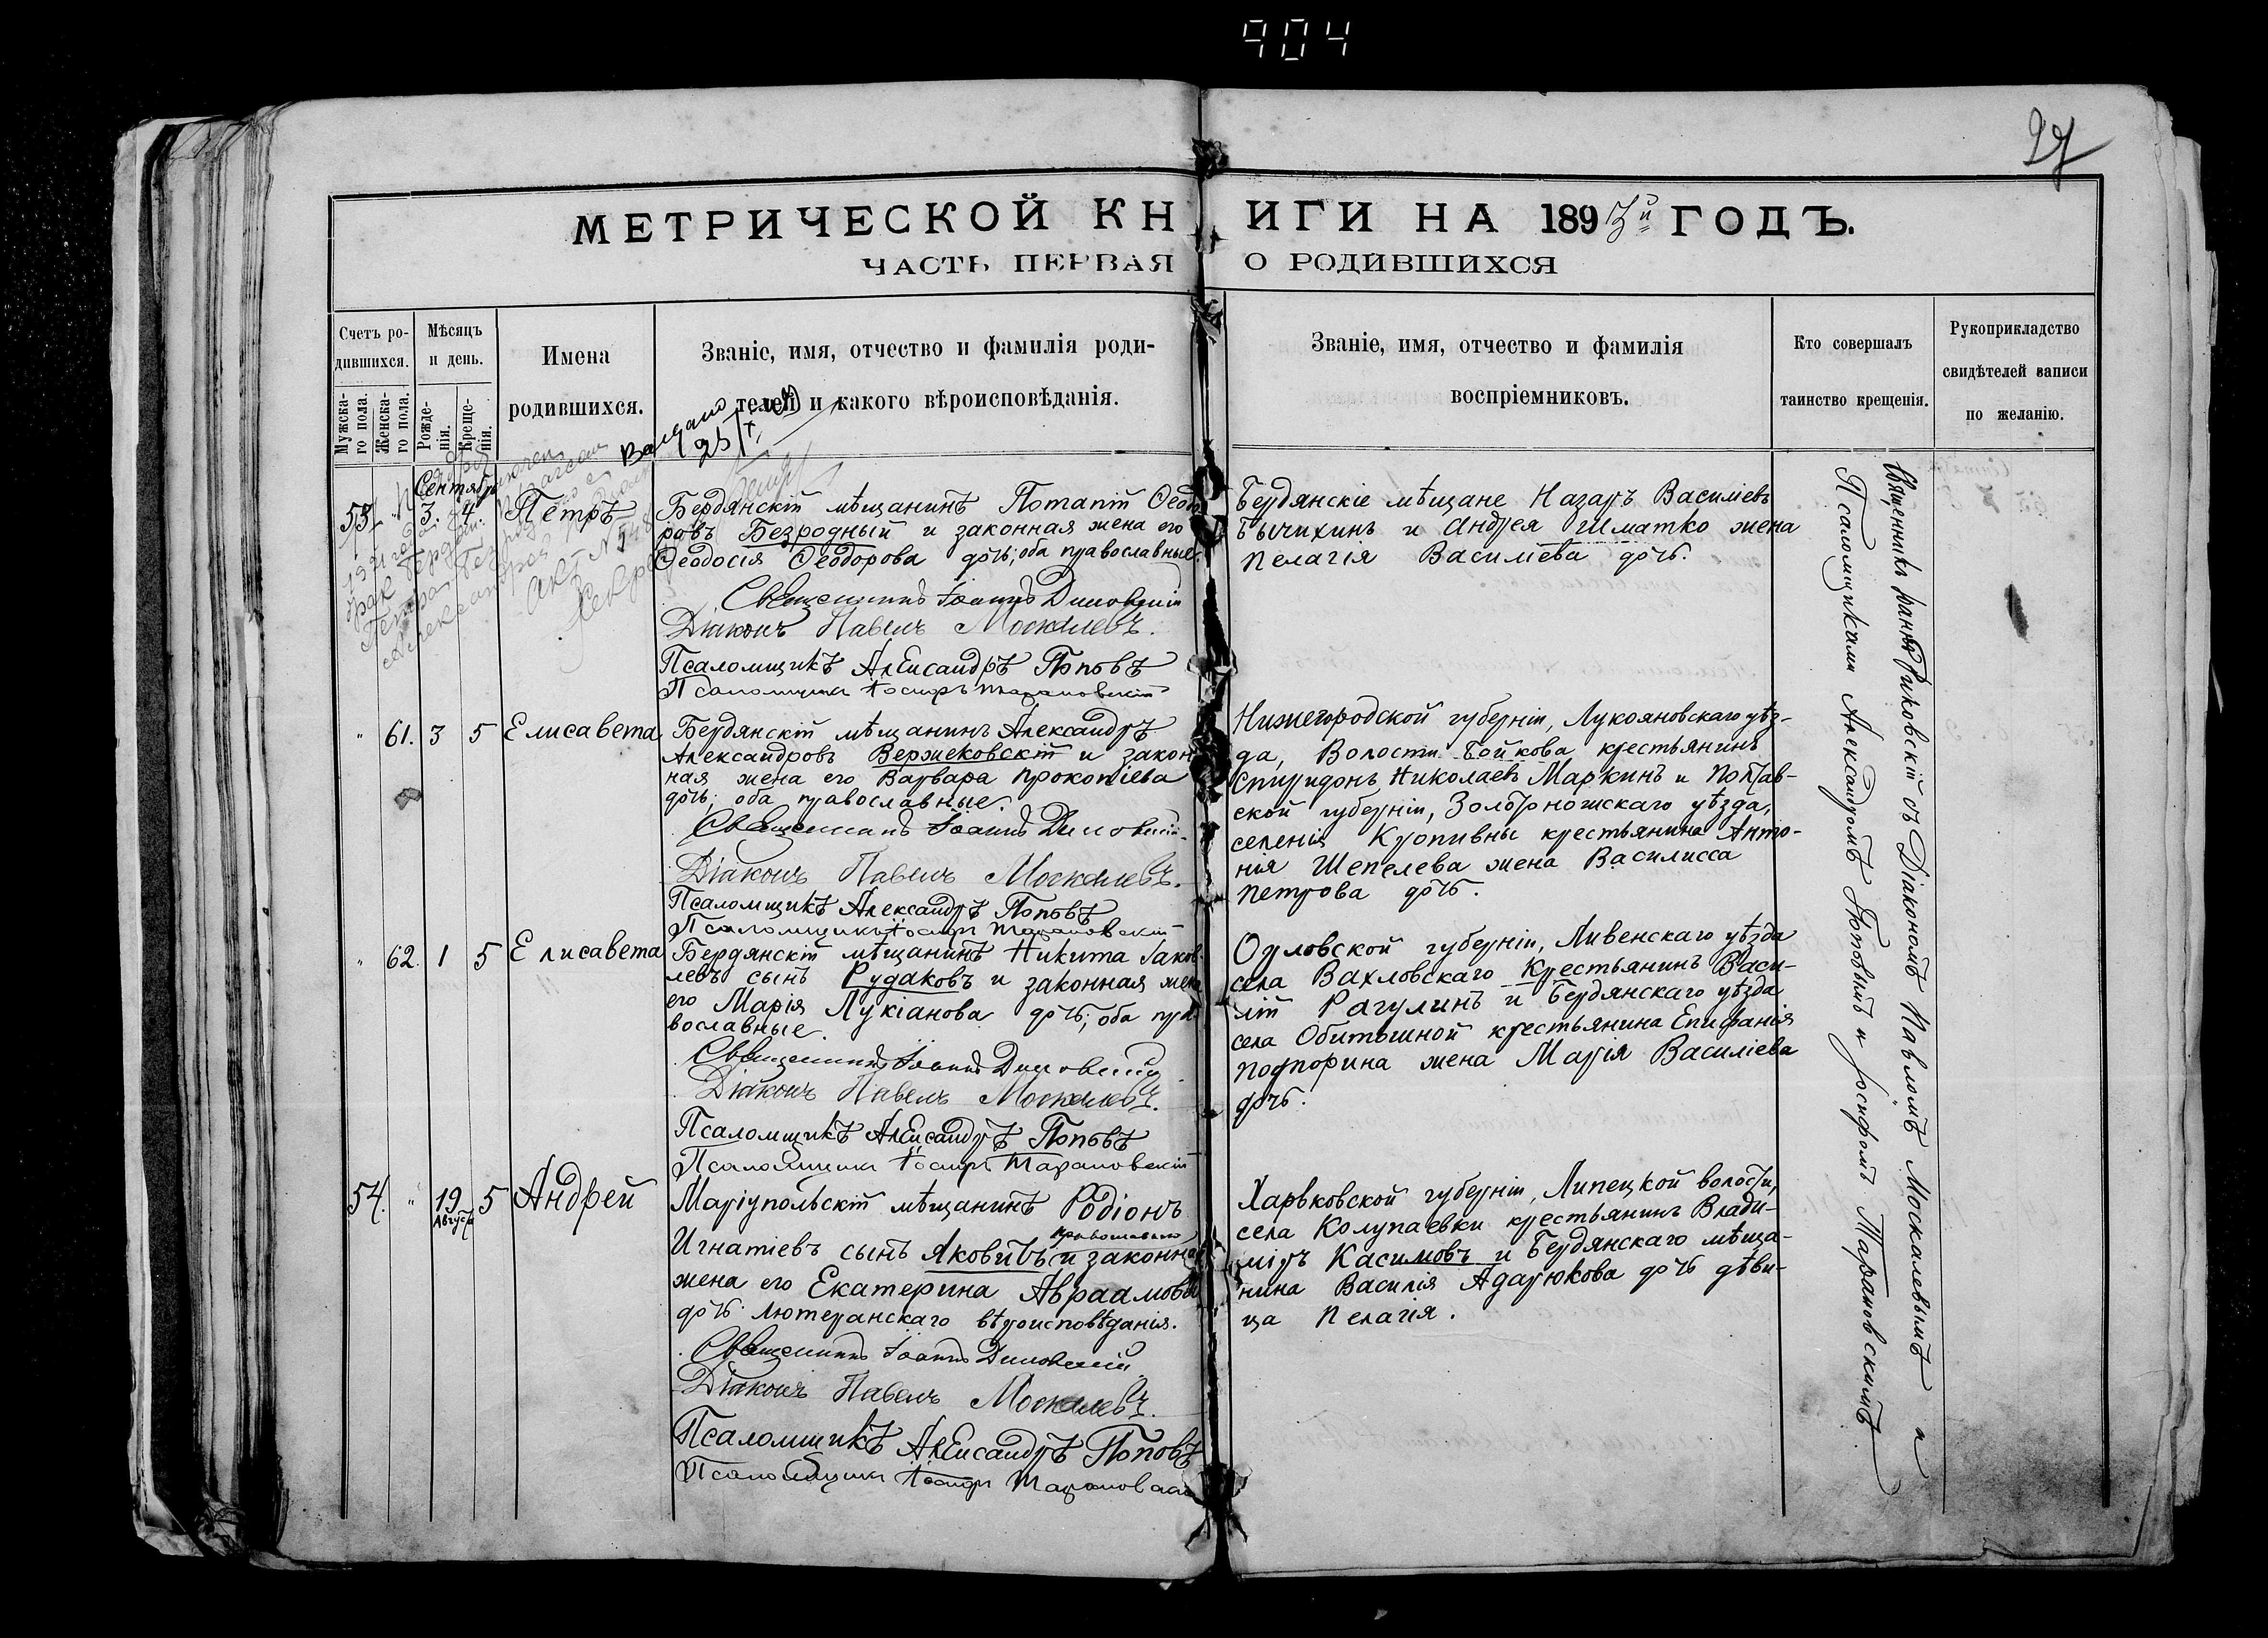 904
27
МЕТРИЧЕСКОЙ КНИГИ НА 1893й ГОДЪ.
ЧАСТЬ ПЕРВАЯ О РОДИВШИХСЯ
Счетъ ро-
дившихся.
Мужска-
го пола.
Женска-
го пола.
Мѣсяцъ
и день.
Рожде-
нія.
Креще-
нія.
Имена
родившихся.
Званіе, имя, отчество и фамилія роди-
телей и какого вѣроисповѣданія.
Званіе, имя, отчество и фамилія
воспріемниковъ.
Кто совершалъ
таинство крещенія.
Рукоприкладство
свидѣтелей записи
по желанію.
Сентябрь
53. " 3. 4. Петръ
Бердянскій мѣщанинъ Потапій Ѳеодо
ровъ Безродный и законная жена его
Ѳеодосія Ѳеодорова дочь; оба православные.
Священникъ Іоаннъ
Діаконъ Павелъ Москалевъ.
Псаломщикъ Александръ Поповъ
Псаломщикъ Іосифъ Тарановскій
Бердянскіе мѣщане Назаръ Василіевъ
Бычихинъ и Андрея Шматко жена
Пелагія Василіева дочь.
" 61. 3 5 Елисавета
Бердянскій мѣщанинъ Александръ
Александровъ Вержековскій и закон
ная жена его Варвара Прокопіева
дочь; оба православные.
Священникъ Іоаннъ
Діаконъ Павелъ Москалевъ.
Псаломщикъ Александръ Поповъ
Псаломщикъ Іосифъ Тарановскій
Нижегородской губерніи, Лукояновскаго уѣз-
да, Волости Бойкова крестьянинъ
Спиридонъ Николаевъ Маркинъ и Полтав-
ской губерніи, Золотоножскаго уѣзда,
селенія Кропивны крестьянина Анто-
нія Шепелева жена Василисса
Петрова дочь.
" 62. 1 5 Елисавета
Бердянскій мѣщанинъ Никита Іаков
левъ сынъ Рудаковъ и законная жена
его Марія Лукіанова дочь; оба пра
вославные.
Священникъ Іоаннъ
Діаконъ Павелъ Москалевъ.
Псаломщикъ Александръ Поповъ
Псаломщикъ Іосифъ Тарановскій
Орловской губерніи, Ливенскаго уѣзда
села Вахловскаго Крестьянинъ Васи-
лій Рагулинъ и Бердянскаго уѣзда
села Обиточной крестьянина Епифанія
Подпорина жена Марія Василіева
дочь.
54. " 19 Август 5 Андрей
Маріупольскій мѣщанинъ Родіонъ
православн
Игнатіевъ сынъ Яковитъ и законная
жена его Екатерина Авраамова
дочь лютеранскаго вѣроисповѣданія.
Священникъ Іоаннъ
Діаконъ Павелъ Москалевъ.
Псаломщикъ Александръ Поповъ
Псаломщикъ Іосифъ Тарановскій
Харьковской губерніи, Липецкой волости,
села Колупаевки крестьянинъ Влади-
міръ Касимовъ и Бердянскаго мѣща-
нина Василія Адарюкова дочь дѣви-
ца Пелагія.
Священникъ Іоаннъ съ Діакономъ Павломъ Москалевымъ и
Псаломщиками Александромъ Поповымъ и Іосифомъ Тарановскимъ